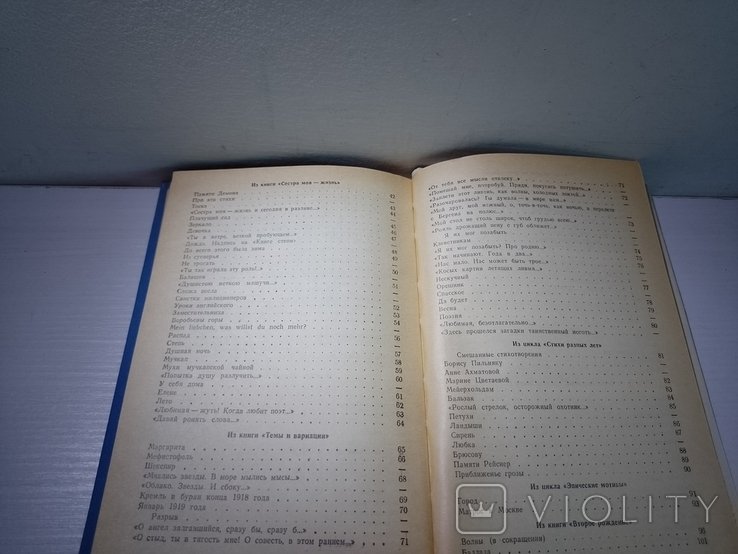 Из книги «Сестра моя — жизнь»
Памяти Демона 42
Про эти стихи 43
Тоска
«Сестра моя — жизнь и сегодня в разливе...» 44
Плачущий сад 45
Зеркало
Девочка 46
«Ты в ветре, веткой пробующем...» 47
Дождь. Надпись на «Книге степи»
До всего этого была зима 48
Из суеверья 49
Не трогать
«Ты так играла эту роль!..» 50
Балашов
«Душистою веткою машучи...» 51
Сложа весла
Свистки милиционеров
Уроки английского 52
Заместительница 53
Воробьевы горы 54
Mein liebchen, was willst du noch mehr?
Распад 56
Степь
Душная ночь 57
Мучкап 58
Мухи мучкапской чайной
«Попытка душу разлучить...» 59
У себя дома 60
Елене
Лето 61
«Любимая — жуть! Когда любит поэт...» 62
«Давай ронять слова...» 63
64
Из книги «Темы и вариации»
Маргарита 65
Мефистофель 66
Шекспир
«Мчались звезды. В море мылись мысы...» 68
«Облако. Звезды. И сбоку...»
Кремль в буран конца 1918 года 69
Январь 1919 года 70
Разрыв
«О ангел залгавшийся, сразу бы, сразу б...»
«О стыд, ты в тягость мне! О совесть, в этом раннем...» 71
«От тебя все мысли отвлеку...» 71
«Помешай мне, попробуй. Приди, покусись потушить...»
«Заплети этот ливень, как волны, холодных локтей...» 72
«Разочаровалась? Ты думала — в мире нам...»
«Мой друг, мой нежный, о, точь-в-точь, как ночью, в перелете с Бергена на полюс...»
«Мой стол не столь широк, чтоб грудью всею...» 73
«Рояль дрожащий пену с губ оближет...»
Я их мог позабыть 74
Клеветникам
«Я их мог позабыть? Про родню...»
«Так начинают. Года в два...» 75
«Нас мало. Нас может быть трое...» 76
«Косых картин летящих ливмя...»
Нескучный 77
Орешник
Спасское
Да будет 78
Весна
Поэзия 79
«Любимая, безотлагательно...»
«Здесь прошелся загадки таинственный ноготь...» 80
Из цикла «Стихи разных лет»
Смешанные стихотворения 81
Борису Пильняку
Анне Ахматовой
Марине Цветаевой 82
Мейерхольдам 83
Бальзак 84
«Рослый стрелок, осторожный охотник...» 85
Петухи
Ландыши
Сирень 87
Любка
Брюсову 88
Памяти Рейснер 89
Приближенье грозы 90
Из цикла «Эпические мотивы»
Город 91
Москве 93
Из книги «Второе рождение»
Волны (в сокращении) 96
Баллада 101
VIOLITY